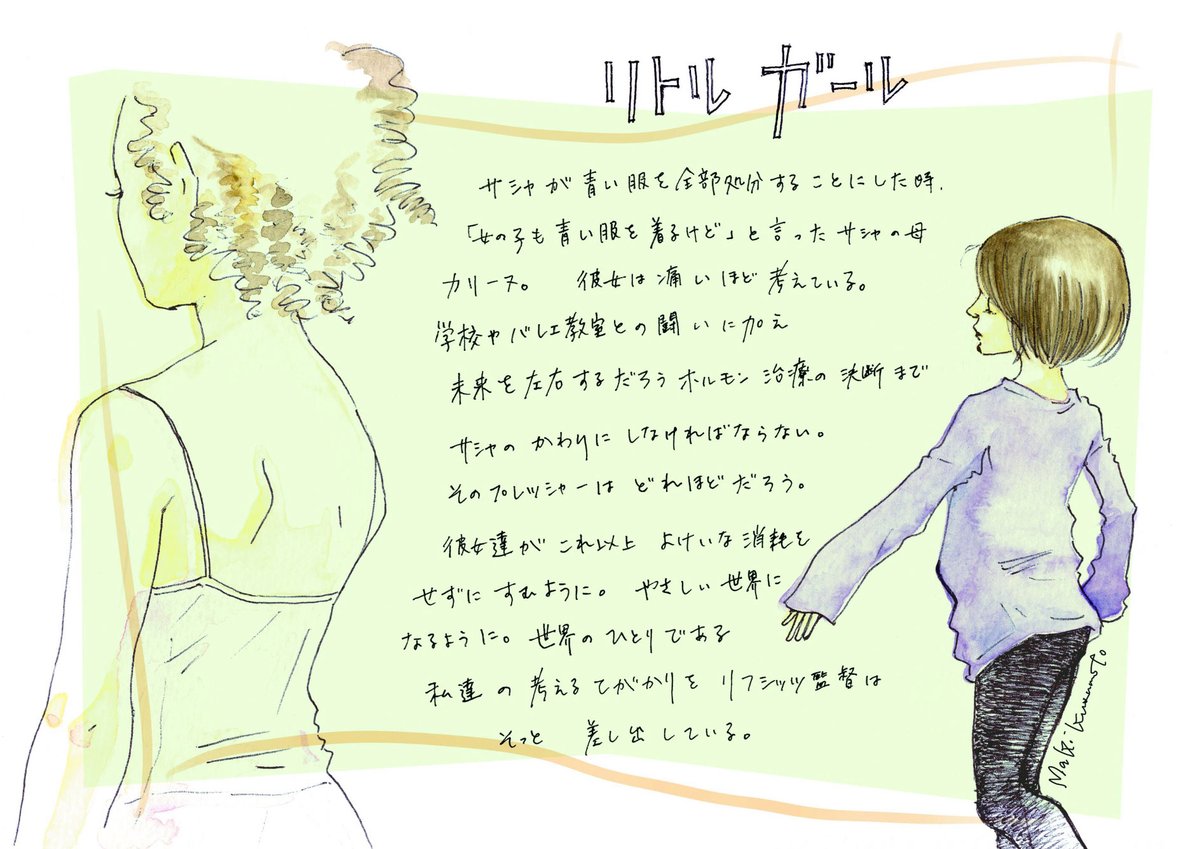 リトル ガール
サシャが青い服を全部処分することにした時、
「女の子も青い服を着るけど」と言ったサシャの母
カリーヌ。 彼女は痛いほど考えている。
学校やバレエ教室との闘いに加え
未来を左右するだろうホルモン治療の決断まで
サシャのかわりにしなければならない。
そのプレッシャーはどれほどだろう。
彼女達がこれ以上 よけいな消耗を
せずにすむように。 やさしい世界に
なるように。世界のひとりである
私達の考えるてがかりをリフシッツ監督は
そっと 差し出している。
Maki Kusumoto